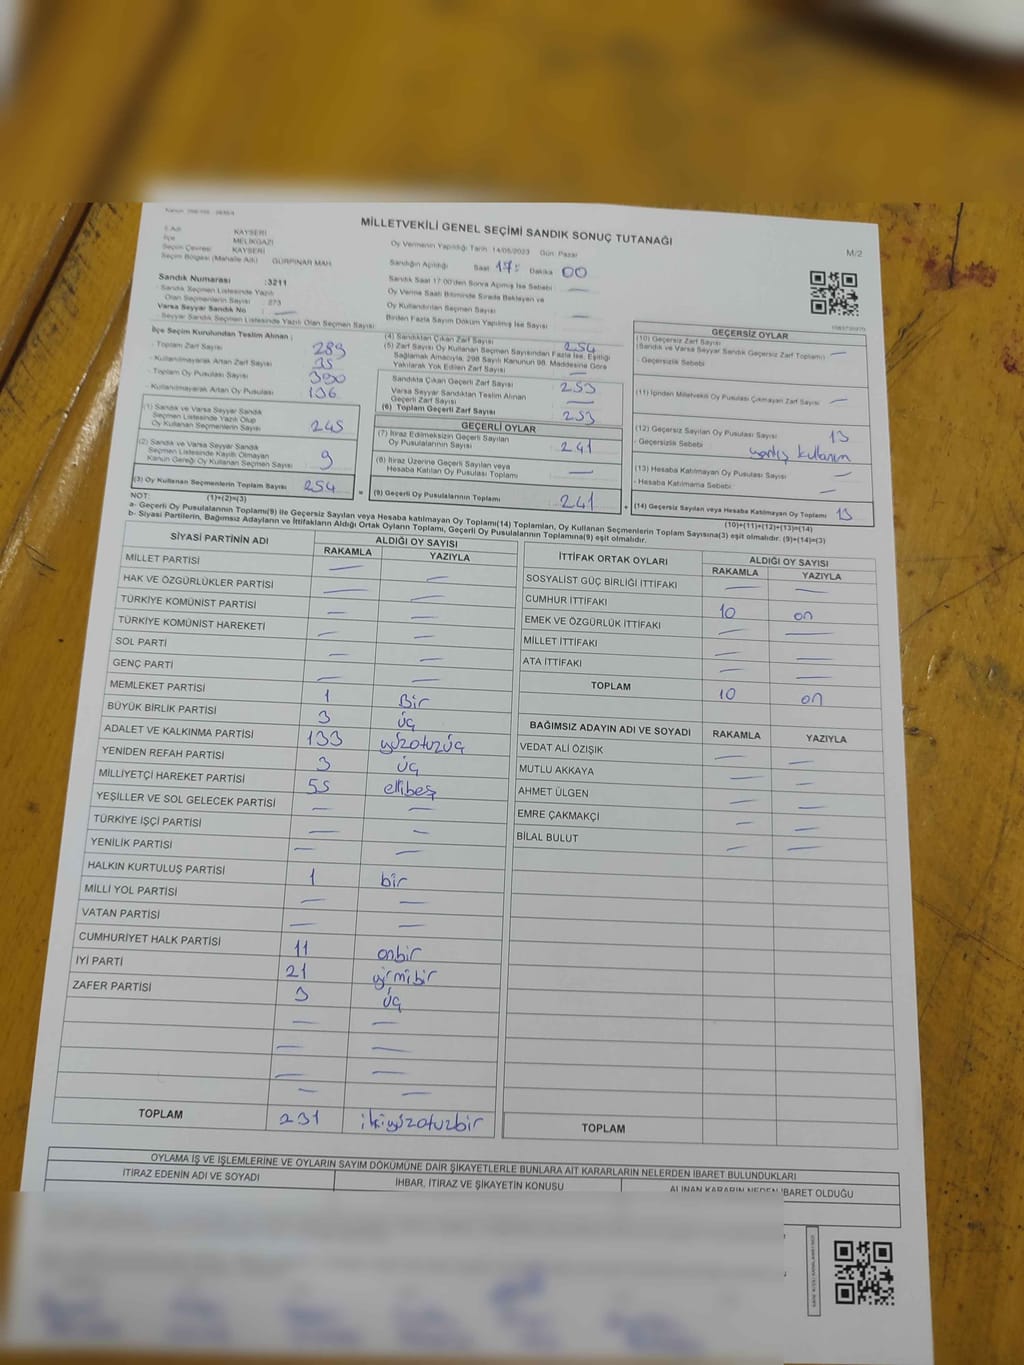 MİLLETVEKİLİ GENEL SEÇİMİ SANDIK SONUÇ TUTANAĞI
M/2
İl Adı KAYSERİ
İlçe MELİKGAZİ
Seçim Çevresi KAYSERİ
Seçim Bölgesi (Mahalle Adı) GÜRPINAR MAH
Oy Vermenin Yapıldığı Tarih 14/05/2023 Gün: Pazar
Sandığın Açıldığı Saat 17: Dakika 00
Sandık Saat 17:00'den Sonra Açılmış İse Sebebi —
Oy Verme Saati Bitiminde Sırada Bekleyen ve
Oy Kullandırılan Seçmen Sayısı —
Birden Fazla Sayım Döküm Yapılmış İse Sayısı
Sandık Numarası :3211
Sandık Seçmen Listesinde Yazılı
Olan Seçmenlerin Sayısı 273
Varsa Seyyar Sandık No —
Seyyar Sandık Seçmen Listesinde Yazılı Olan Seçmen Sayısı
İlçe Seçim Kurulundan Teslim Alınan :
- Toplam Zarf Sayısı 289
- Kullanılmayarak Artan Zarf Sayısı 35
- Toplam Oy Pusulası Sayısı 390
- Kullanılmayarak Artan Oy Pusulası 136
(1) Sandık ve Varsa Seyyar Sandık
Seçmen Listesinde Yazılı Olup
Oy Kullanan Seçmen Sayısı 245
(2) Sandık ve Varsa Seyyar Sandık
Seçmen Listesinde Kayıtlı Olmayan
Kanun Gereği Oy Kullanan Seçmen Sayısı 9
(3) Oy Kullanan Seçmenlerin Toplam Sayısı 254
(4) Sandıktan Çıkan Zarf Sayısı 254
(5) Zarf Sayısı Oy Kullanan Seçmen Sayısından Fazla İse, Eşitliği
Sağlamak Amacıyla, 298 Sayılı Kanunun 98. Maddesine Göre
Yakılarak Yok Edilen Zarf Sayısı —
Sandıkta Çıkan Geçerli Zarf Sayısı 253
Varsa Seyyar Sandıktan Teslim Alınan
Geçerli Zarf Sayısı —
(6) Toplam Geçerli Zarf Sayısı 253
GEÇERLİ OYLAR
(7) İtiraz Edilmeksizin Geçerli Sayılan
Oy Pusulalarının Sayısı 241
(8) İtiraz Üzerine Geçerli Sayılan veya
Hesaba Katılan Oy Pusulası Toplamı —
= (9) Geçerli Oy Pusulalarının Toplamı 241 +
GEÇERSİZ OYLAR
(10) Geçersiz Zarf Sayısı
(Sandık ve Varsa Seyyar Sandık Geçersiz Zarf Toplamı) —
- Geçersizlik Sebebi
(11) İçinden Milletvekili Oy Pusulası Çıkmayan Zarf Sayısı —
(12) Geçersiz Sayılan Oy Pusulası Sayısı 13
- Geçersizlik Sebebi yanlış kullanım
(13) Hesaba Katılmayan Oy Pusulası Sayısı —
- Hesaba Katılmama Sebebi —
(14) Geçersiz Sayılan veya Hesaba Katılmayan Oy Toplamı 13
NOT: (1)+(2)=(3)
(10)+(11)+(12)+(13)=(14)
a- Geçerli Oy Pusulalarının Toplamı(9) ile Geçersiz Sayılan veya Hesaba katılmayan Oy Toplamı(14) Toplamları, Oy Kullanan Seçmenlerin Toplam Sayısına(3) eşit olmalıdır. (9)+(14)=(3)
b- Siyasi Partilerin, Bağımsız Adayların ve İttifakların Aldığı Ortak Oyların Toplamı, Geçerli Oy Pusulalarının Toplamına(9) eşit olmalıdır.
SİYASİ PARTİNİN ADI ALDIĞI OY SAYISI
RAKAMLA YAZIYLA
MİLLET PARTİSİ — —
HAK VE ÖZGÜRLÜKLER PARTİSİ — —
TÜRKİYE KOMÜNİST PARTİSİ — —
TÜRKİYE KOMÜNİST HAREKETİ — —
SOL PARTİ — —
GENÇ PARTİ — —
MEMLEKET PARTİSİ 1 Bir
BÜYÜK BİRLİK PARTİSİ 3 üç
ADALET VE KALKINMA PARTİSİ 133 yüzotuzüç
YENİDEN REFAH PARTİSİ 3 üç
MİLLİYETÇİ HAREKET PARTİSİ 55 ellibeş
YEŞİLLER VE SOL GELECEK PARTİSİ — —
TÜRKİYE İŞÇİ PARTİSİ — —
YENİLİK PARTİSİ — —
HALKIN KURTULUŞ PARTİSİ 1 bir
MİLLİ YOL PARTİSİ — —
VATAN PARTİSİ — —
CUMHURİYET HALK PARTİSİ 11 onbir
İYİ PARTİ 21 yirmibir
ZAFER PARTİSİ 3 üç
— —
— —
— —
— —
TOPLAM 231 ikiyüzotuzbir
İTTİFAK ORTAK OYLARI ALDIĞI OY SAYISI
RAKAMLA YAZIYLA
SOSYALİST GÜÇ BİRLİĞİ İTTİFAKI — —
CUMHUR İTTİFAKI 10 on
EMEK VE ÖZGÜRLÜK İTTİFAKI — —
MİLLET İTTİFAKI — —
ATA İTTİFAKI — —
TOPLAM 10 on
BAĞIMSIZ ADAYIN ADI VE SOYADI RAKAMLA YAZIYLA
VEDAT ALİ ÖZIŞIK — —
MUTLU AKKAYA — —
AHMET ÜLGEN — —
EMRE ÇAKMAKÇİ — —
BİLAL BULUT — —
TOPLAM
OYLAMA İŞ VE İŞLEMLERİNE VE OYLARIN SAYIM DÖKÜMÜNE DAİR ŞİKAYETLERLE BUNLARA AİT KARARLARIN NELERDEN İBARET BULUNDUKLARI
İTİRAZ EDENİN ADI VE SOYADI İHBAR, İTİRAZ VE ŞİKAYETİN KONUSU ALINAN KARARIN NEDEN İBARET OLDUĞU